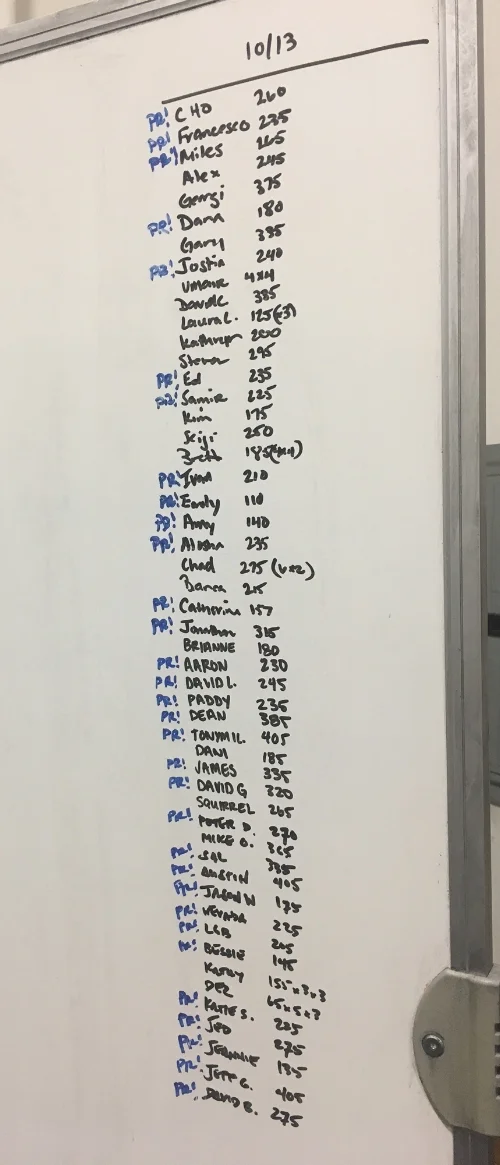 10/13
PR! CHO 260
PR! Francesco 235
PR! Miles 265
Alex 245
Georgi 375
PR! Dana 180
Gary 335
PR! Jostin 240
4x4
385
Laura L. 125(x3)
Kathryn 200
Steven 295
PR! Ed 235
PR! Samir 225
Kim 175
Seiji 250
Brett 185(4x4)
PR! Ivan 210
PR! Emily 110
PR! Amy 140
PR! 235
Chad 275
215
PR! Catherine 157
PR! Jonathan 315
BRIANNE 180
PR! AARON 230
PR! DAVID L. 245
PR! PADDY 235
PR! DEAN 385
PR! TONY M.L. 405
DANI 185
PR! JAMES 335
PR! DAVID G 320
SQUIRREL 265
PR! PETER D. 270
MIKE O. 365
PR! SAL 385
PR! AUSTIN 405
PR! JASON W 175
PR! 225
PR! 205
PR! BESSIE 145
KATHY 155x3x3
DEZ 65x5x3
PR! KATIE S. 235
PR! JED 275
PR! JEANNIE 135
PR! JEFF G. 405
PR! DAVID B. 275